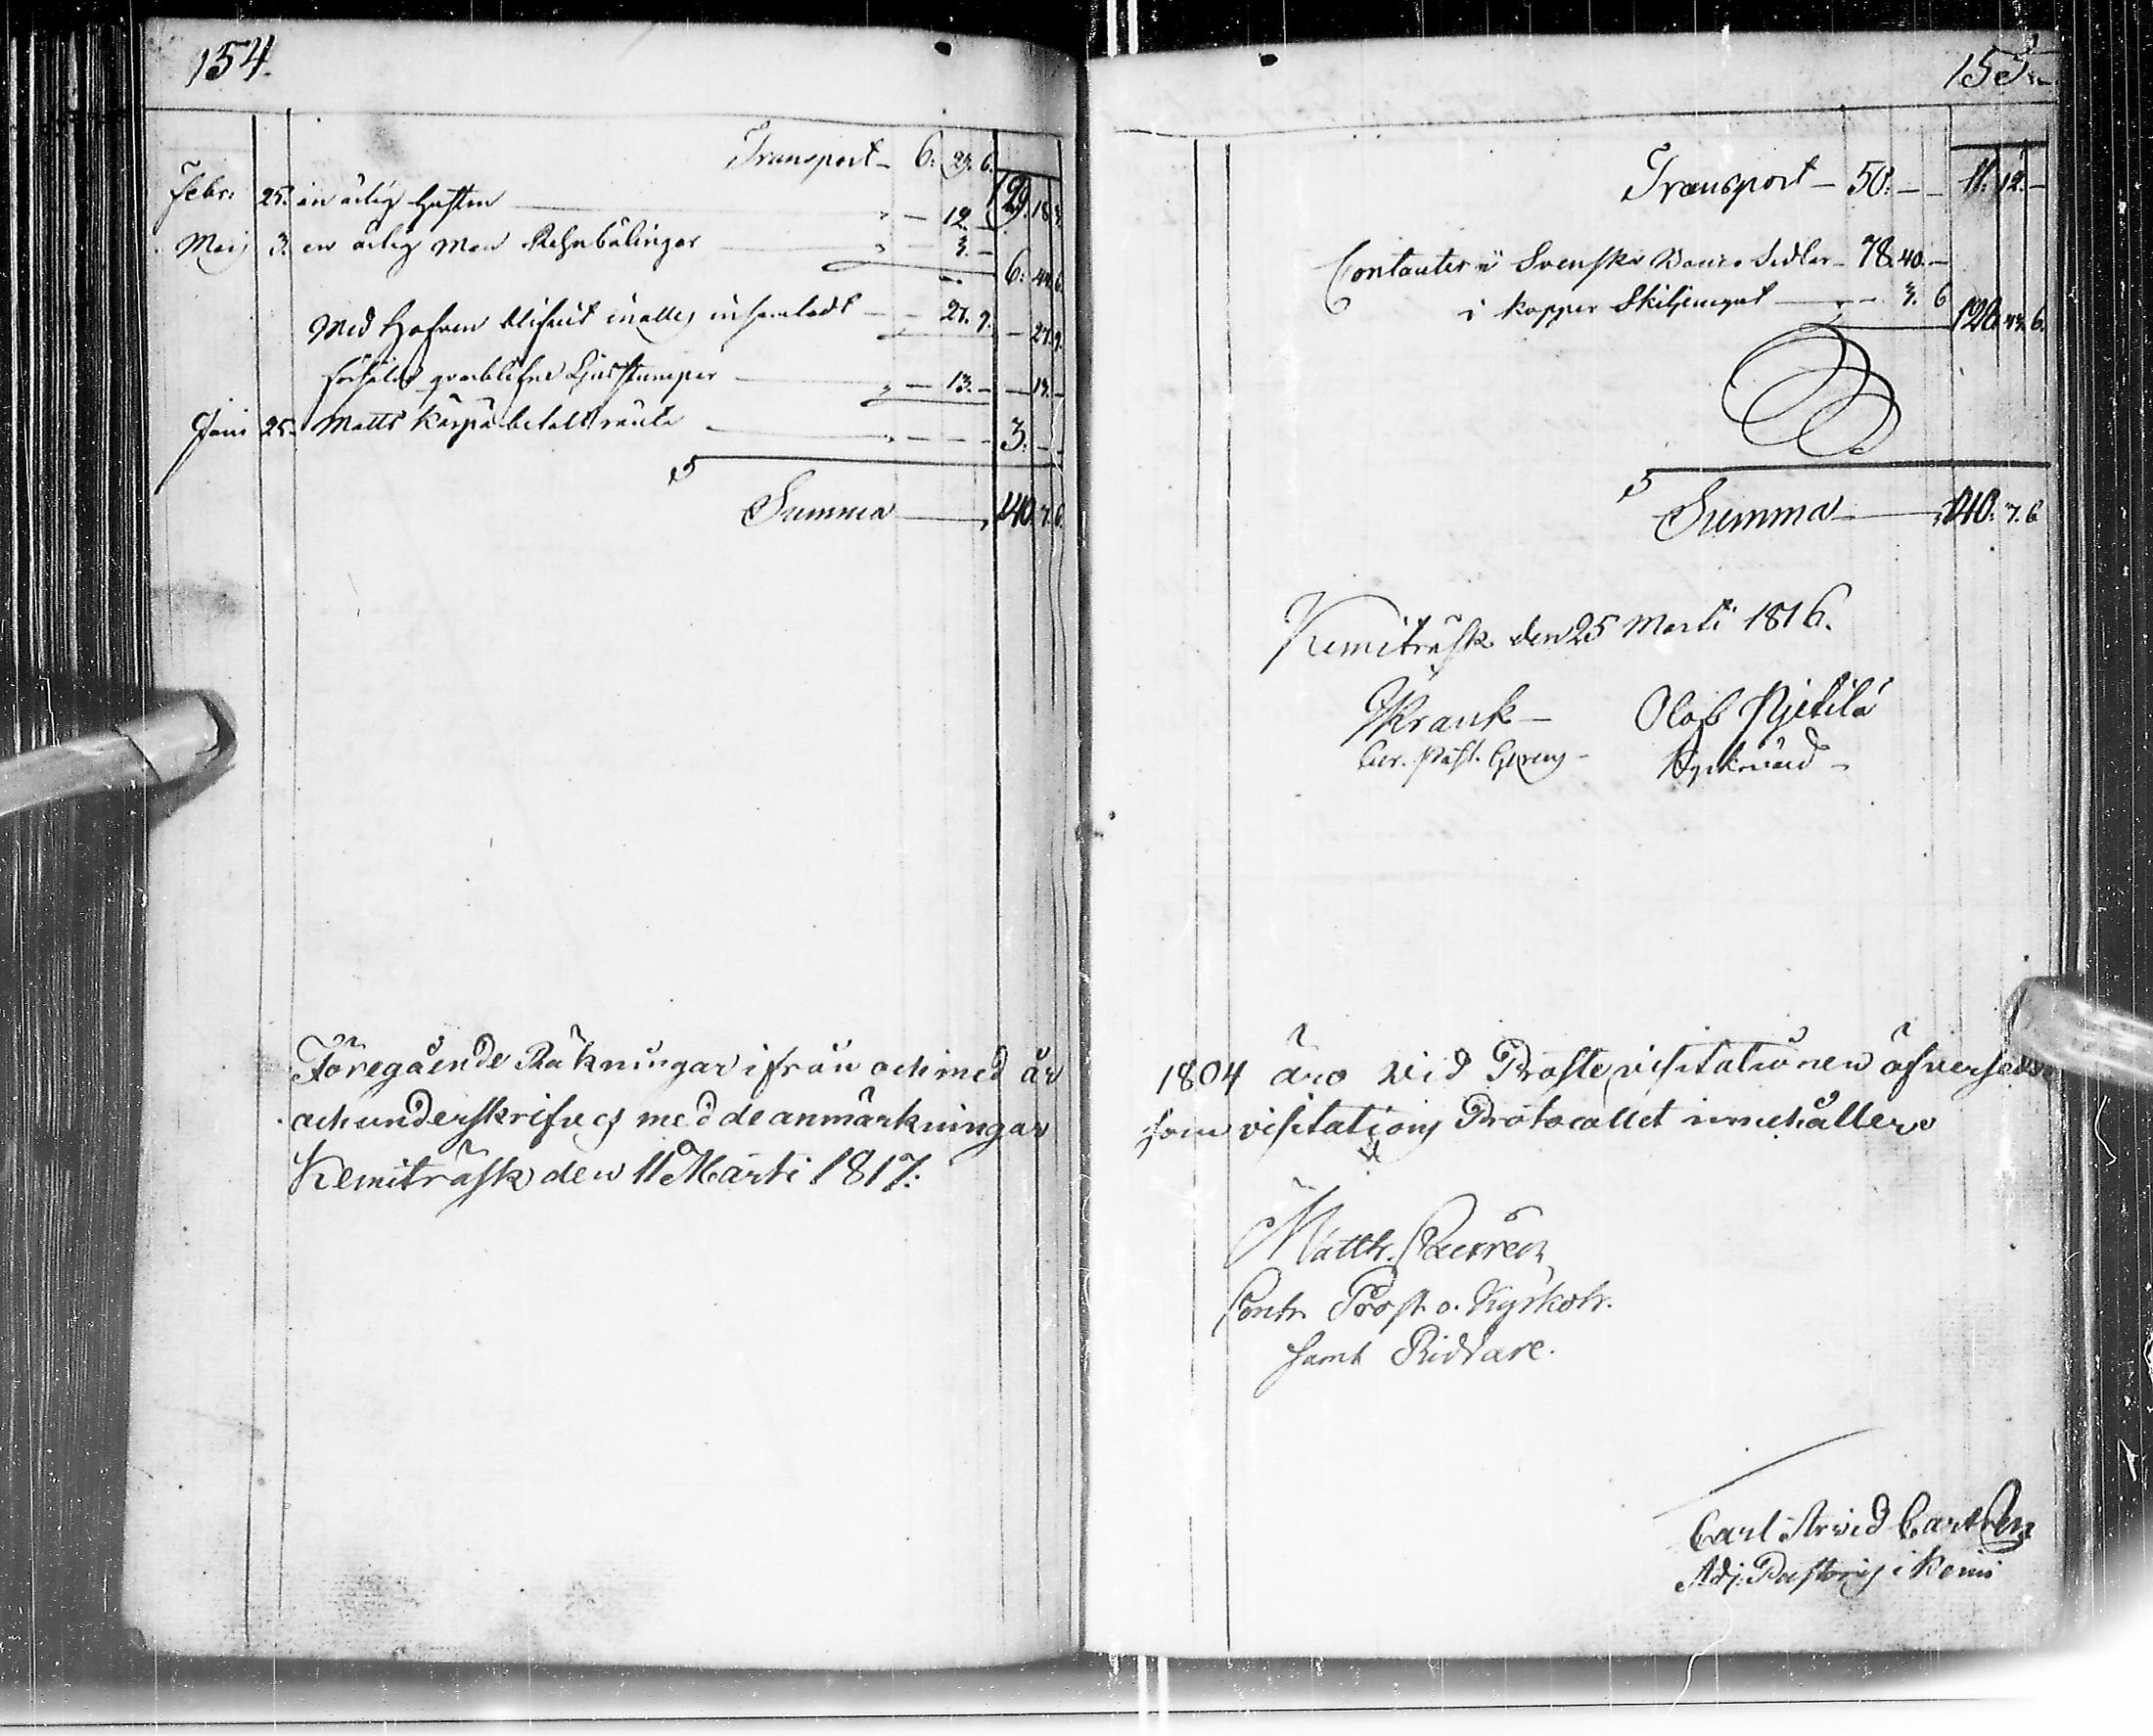 154.
Transport - 6: 29. 6.
129. 18.
Febr: 25. en ärlig Gosten " - 12. -
Maij 3. en ärlig Man Rehnbälingar " - 3. - 6: 44. 6.
Med Hofven uti inalles insamladt - 27. 9. - 27. 9.
försålde qvarblifne Ljusstumpar " - 13. - - 13. -
Junii 25. Matts Karpa betalt ränta " - - - 3. - -
Summa - 140. 7. 6.
Föregående Räkningar ifrån och med år
och underskrifves med de anmärkningar
Kemiträsk den 11 Marti 1817.
155.
Transport - 50. - - 11. 12. -
Contanter i Svenska Banco Sedlar - 78. 40. -
i kopper Skiljemynt - " - 3. 6 128. 43. 6.
Summa - 140. 7. 6
Kemiträsk den 25 Marti 1816.
Krank - Olof Kjetilä
Kyrkvärd -
1804 äro vid Prostevisitationen öfversedde
som visitations Protocollet innehåller
Matth. Castrén
Contr. Prost o. Kyrkoh.
samt Riddare.
Carl Arvid Castrén
Adj: Pastoris i Kemi